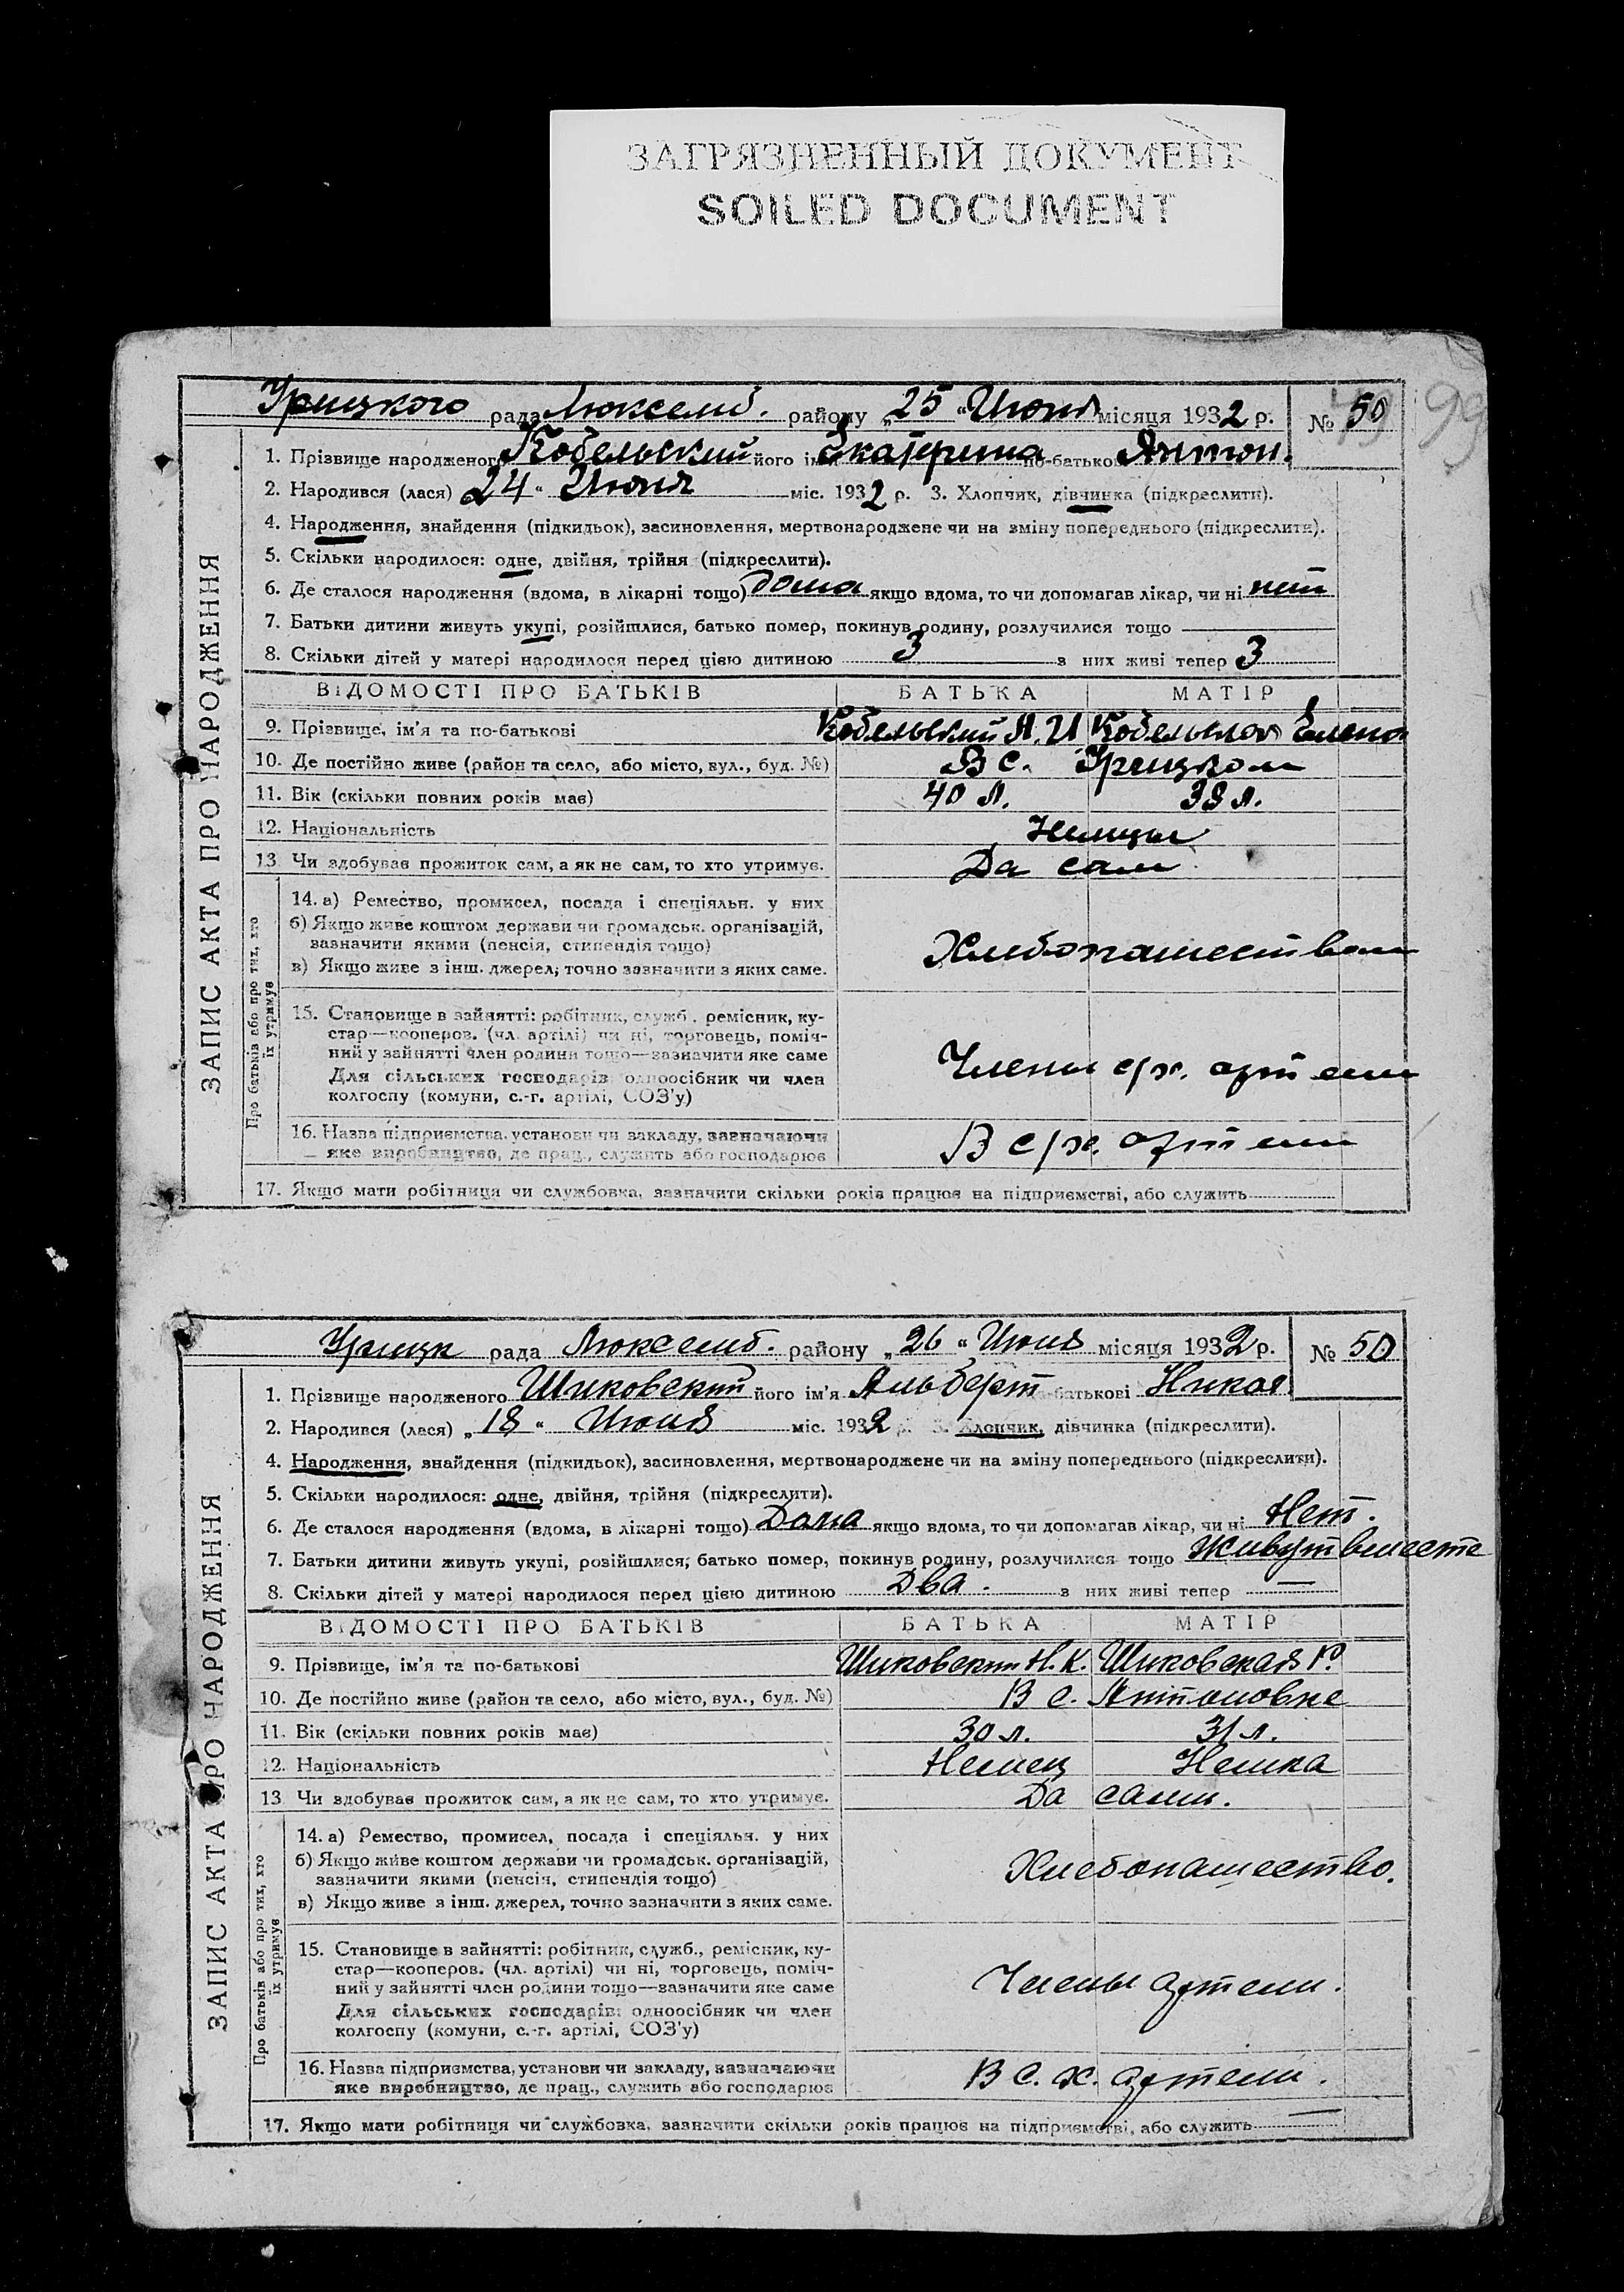 ЗАГРЯЗНЕННЫЙ ДОКУМЕНТ
SOILED DOCUMENT
99
Урицкого рада Люксемб. району „25“ Июня місяця 1932 р. № 50
ЗАПИС АКТА ПРО НАРОДЖЕННЯ
1. Прізвище народженого Кобельский його ім'я Екатерина по-батькові Антон.
2. Народився (лася) 24“ Июня міс. 1932 р. 3. Хлопчик, дівчинка (підкреслити).
4. Народження, знайдення (підкидьок), засиновлення, мертвонароджене чи на зміну попереднього (підкреслити).
5. Скільки народилося: одне, двійня, трійня (підкреслити).
6. Де сталося народження (вдома, в лікарні тощо) Дома якщо вдома, то чи допомагав лікар, чи ні нет
7. Батьки дитини живуть укупі, розійшлися, батько помер, покинув родину, розлучилися тощо
8. Скільки дітей у матері народилося перед цією дитиною 3 з них живі тепер 3
ВІДОМОСТІ ПРО БАТЬКІВ БАТЬКА МАТІР
9. Прізвище, ім'я та по-батькові Кобельский А. И Кобельская Елена
10. Де постійно живе (район та село, або місто, вул., буд. №) В с. Урицком
11. Вік (скільки повних років має) 40 л. 38 л.
12. Національність Немцы
13. Чи здобував прожиток сам, а як не сам, то хто утримує. Да сам
Про батьків або про тих, хто їх утримує
14. а) Ремество, промисел, посада і спеціяльн. у них
б) Якщо живе коштом держави чи громадськ. організацій,
зазначити якими (пенсія, стипендія тощо)
Хлебопашеством
в) Якщо живе з інш. джерел, точно зазначити з яких саме.
15. Становище в зайнятті: робітник, служб., ремісник, ку-
стар—кооперов. (чл. артілі) чи ні, торговець, поміч-
ний у зайнятті член родини тощо—зазначити яке саме
Члены с/х. артели
Для сільських господарів: одноосібник чи член
колгоспу (комуни, с.-г. артілі, СОЗ'у)
16. Назва підприємства, установи чи закладу, зазначаючи
яке виробництво, де прац., служить або господарює
В с/х. артели
17. Якщо мати робітниця чи службовка, зазначити скільки років працює на підприємстві, або служить
Урицк рада Люксемб. району „26“ Июня місяця 1932 р. № 50
ЗАПИС АКТА ПРО НАРОДЖЕННЯ
1. Прізвище народженого Шиковский його ім'я Альберт по-батькові Никол
2. Народився (лася) „18“ Июня міс. 1932 р. 3. Хлопчик, дівчинка (підкреслити).
4. Народження, знайдення (підкидьок), засиновлення, мертвонароджене чи на зміну попереднього (підкреслити).
5. Скільки народилося: одне, двійня, трійня (підкреслити).
6. Де сталося народження (вдома, в лікарні тощо) Дома якщо вдома, то чи допомагав лікар, чи ні Нет.
7. Батьки дитини живуть укупі, розійшлися, батько помер, покинув родину, розлучилися тощо Живут вместе
8. Скільки дітей у матері народилося перед цією дитиною Два. з них живі тепер —
ВІДОМОСТІ ПРО БАТЬКІВ БАТЬКА МАТІР
9. Прізвище, ім'я та по-батькові Шиковский Н. К. Шиковская Р.
10. Де постійно живе (район та село, або місто, вул., буд. №) В с. Антоновке
11. Вік (скільки повних років має) 30 л. 31 л.
12. Національність Немец Немка
13. Чи здобував прожиток сам, а як не сам, то хто утримує. Да сами.
Про батьків або про тих, хто їх утримує
14. а) Ремество, промисел, посада і спеціяльн. у них
б) Якщо живе коштом держави чи громадськ. організацій,
зазначити якими (пенсія, стипендія тощо)
Хлебопашество.
в) Якщо живе з інш. джерел, точно зазначити з яких саме.
15. Становище в зайнятті: робітник, служб., ремісник, ку-
стар—кооперов. (чл. артілі) чи ні, торговець, поміч-
ний у зайнятті член родини тощо—зазначити яке саме
Члены артели.
Для сільських господарів: одноосібник чи член
колгоспу (комуни, с.-г. артілі, СОЗ'у)
16. Назва підприємства, установи чи закладу, зазначаючи
яке виробництво, де прац., служить або господарює
В с. х. артели.
17. Якщо мати робітниця чи службовка, зазначити скільки років працює на підприємстві, або служить —